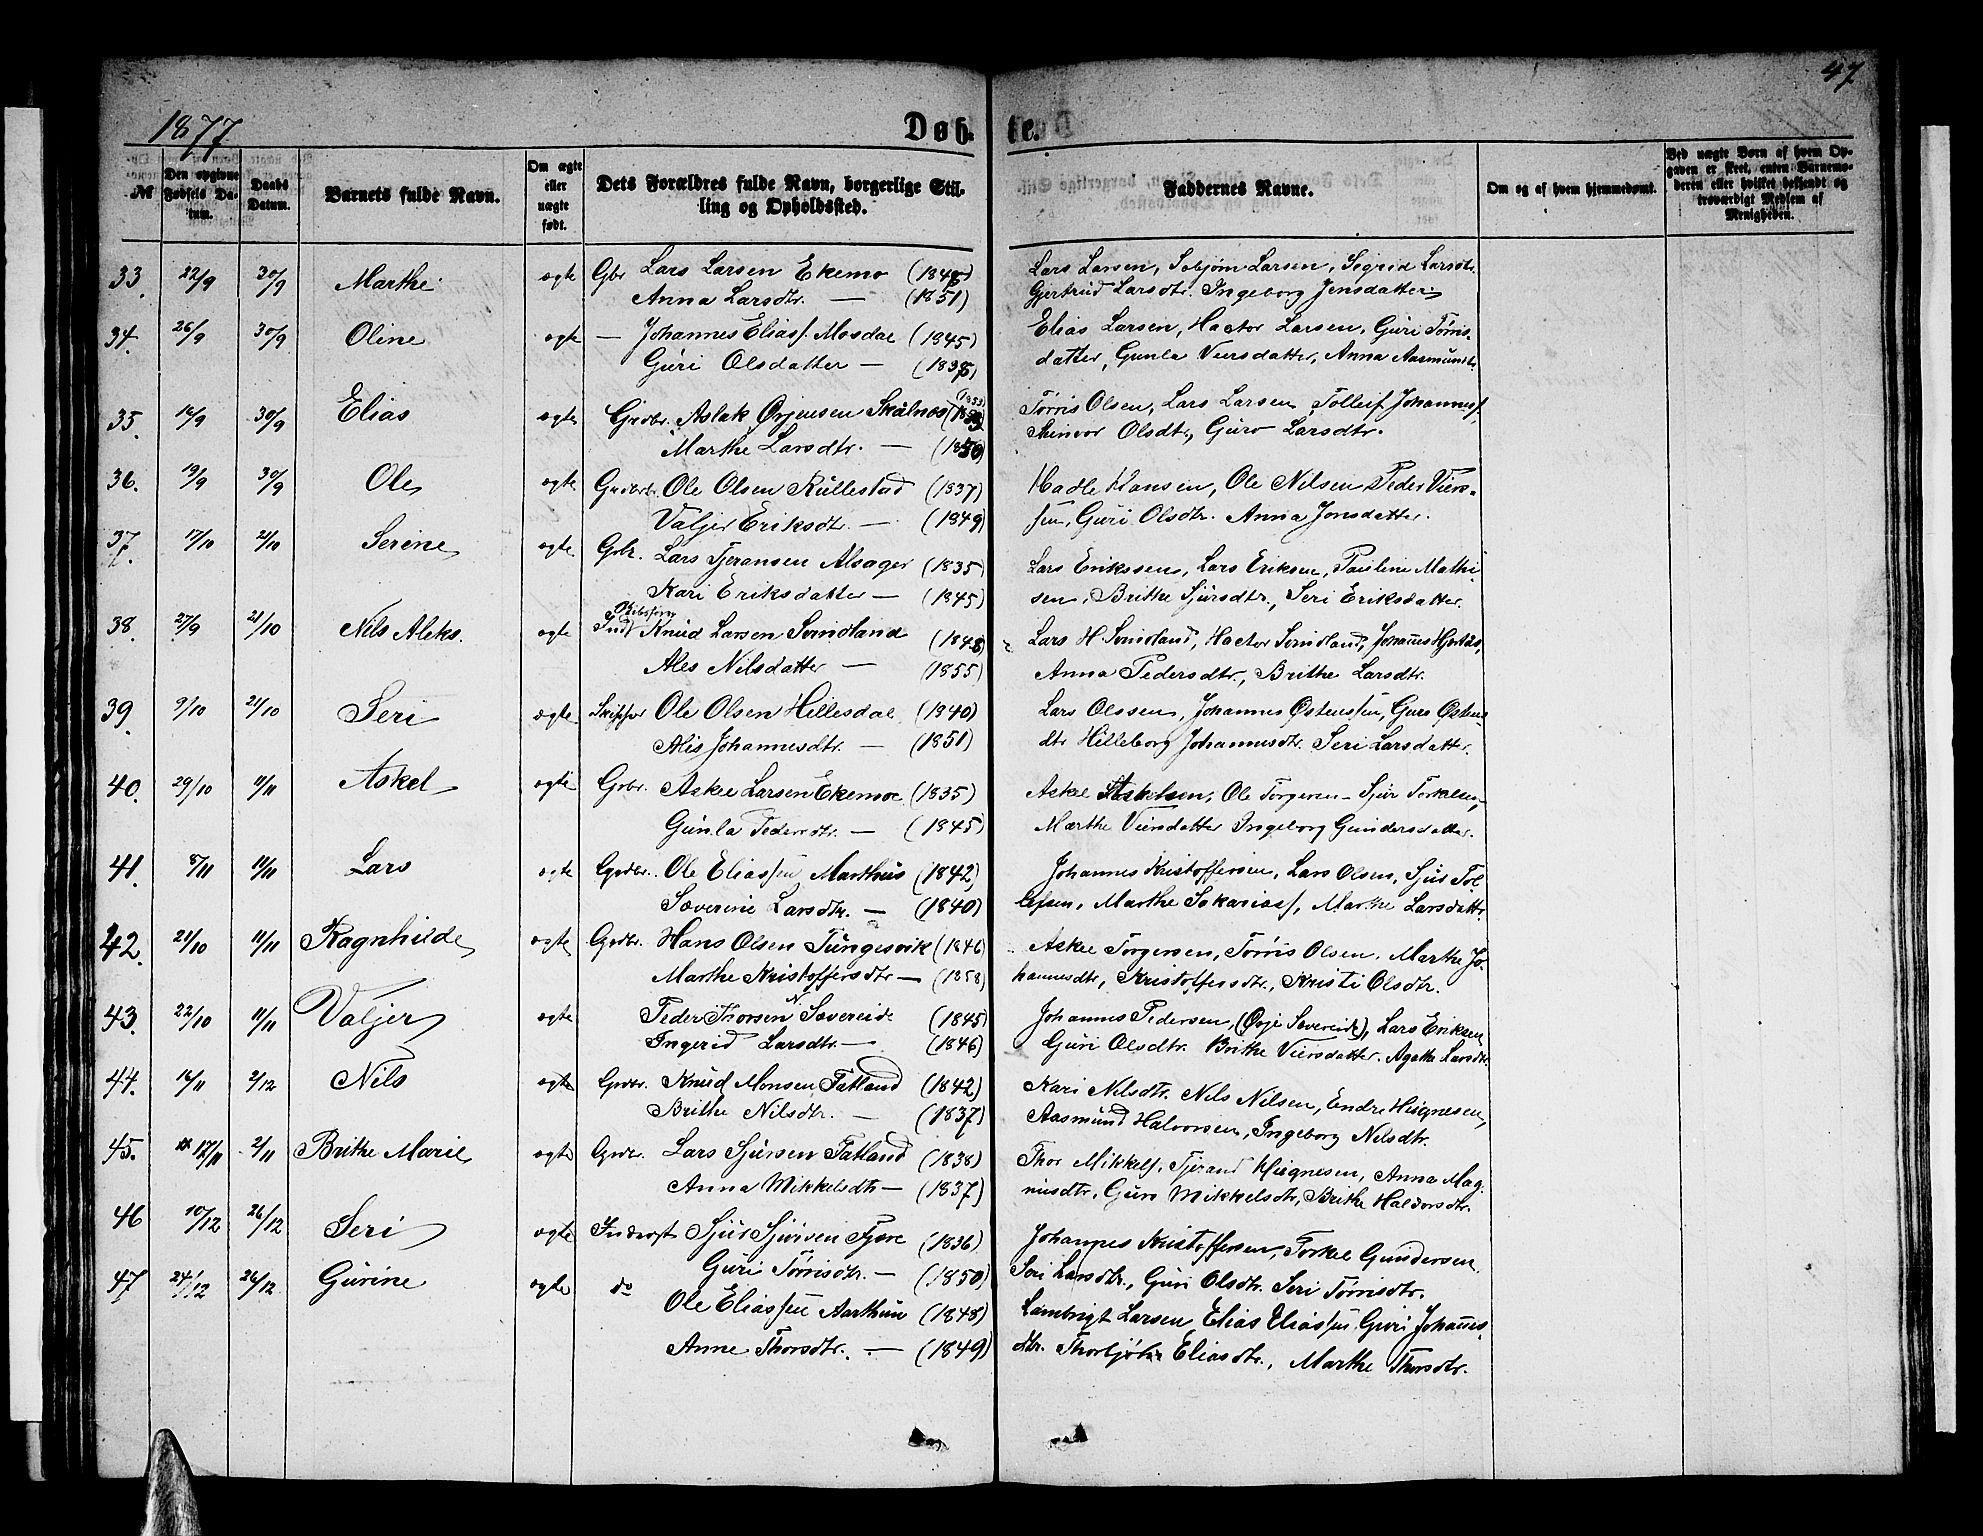 47
1877
Døb- te.
№
Den opgivne Fødsels Datum.
Daabs Datum.
Barnets fulde Navn.
Om ægte eller uægte født.
Dets Forældres fulde Navn, borgerlige Stilling og Opholdssted.
Faddernes Navne.
Om og af hvem hjemmedøbt.
Ved uægte Børn af hvem Opgaven er skeet, enten Barnemoderen eller hvilket bekjendt og troværdigt Medlem af Menigheden.
33. 22/9 30/9 Marthe ægte Gbr Lars Larsen Ekemo Lars Larsen, Larsen, Sigrid Larsdtr.
Anna Larsdtr. — (1851) Gjertrud Larsdtr. Ingeborg Jensdatter
34. 26/9 30/9 Oline ægte — Johannes Eliass. Mosdal (1845) Elias Larsen, Hactor Larsen, Guri Tørris-
Guri Olsdatter — datter, Gunla Viersdatter, Anna Aasmundsd.
35. 16/9 30/9 Elias ægte Grdbr. Aslak Ørjensen Skålnes (1853) Tørris Olsen, Lars Larsen, Tolleif Johanness.
Marthe Larsdtr. — Olsdtr., Guro Larsdtr.
36. 19/9 30/9 Ole ægte Grdbr. Ole Olsen Rullestad (1837) Hadle Hansen, Ole Nilsen Peder Viers-
Valjer Eriksdtr. — (1849) sen, Guri Olsdtr. Anna Jonsdatter.
37. 17/10 21/10 Serine ægte Grbr. Lars Tjeransen Alsager (1835) Lars Erikssen, Lars Eriksen, Pauline Mathi-
Kari Eriksdatter — (1845) sen, Brithe Sjursdtr., Seri Eriksdatter.
38. 27/9 21/10 Nils Aleks. ægte Ind. Knud Larsen Sundland (1848) Lars H. Sundland, Hactor Sundland, Johannes
Ales Nilsdatter — (1855) Anna Pedersdtr., Brithe Larsdtr.
39. 9/10 21/10 Seri ægte Skipper Ole Olsen Hillesdal (1840) Lars Olssen, Johannes Østenssen, Guro Østens-
Alis Johannesdtr. — (1851) dtr Hilleborg Johannesdtr. Seri Larsdatter.
40. 29/10 11/11 Askel ægte Grbr. Askel Larsen Ekemoe (1835) Askel Askelsen, Ole Torgersen Sjur Torkelsen,
Gunla Pedersdtr. — (1845) Marthe Viersdatter Ingeborg Gundersdatter.
41. 8/11 11/11 Lars ægte Grdbr. Ole Eliassen Marthus (1842) Johannes Kristoffersen, Lars Olsen, Sjur Tol-
Severine Larsdtr. — (1840) lefsen, Marthe Sakariass, Marthe Larsdattr
42. 21/10 11/11 Ragnhilde ægte Grdbr. Hans Olsen Tungesvik (1846) Askel Torgersen, Tørris Olsen, Marthe Jo-
Marthe Kristoffersdtr — (1858) hannesdtr, Kristoffersdtr., Kristi Olsdtr.
43. 22/10 11/11 Valjer ægte Peder Thorsen N. Sævereide (1845) Johannes Pedersen, (Øvje Sævereide), Lars Eriksen
Ingerid Larsdtr. — (1846) Guri Olsdtr. Brithe Viersdatter. Agathe Larsdtr.
44. 16/11 2/12 Nils ægte Grdbr. Knud Monsen Fatland (1842) Kari Nilsdtr. Nils Nilsen, Endre
Brithe Nilsdtr. — (1837) Aasmund Halvorsen, Ingeborg Nilsdtr.
45. 17/11 2/11 Brithe Marie ægte Grdbr. Lars Sjursen Fatland (1838) Thor Mikkels, Tjerand Anna Mag-
Anna Mikkelsdtr — (1837) nusdtr. Guro Mikkelsdtr, Brithe Haldorsdtr.
46 10/12 26/12 Seri ægte Inderst Sjur Sjursen Fjære (1836) Johannes Kristoffersen, Torkel Gundersen
Guri Tørrisdtr. — (1850) Seri Larsdtr., Guri Olsdtr. Seri Tørrisdtr.
47 24/12 26/12 Gurine ægte do Ole Eliassen Aarthun (1848) Lambrigt Larsen Elias Eliassen Guri Johannes-
Anne Thorsdtr. — (1849) dtr. Eliasdtr., Marthe Thorsdtr.